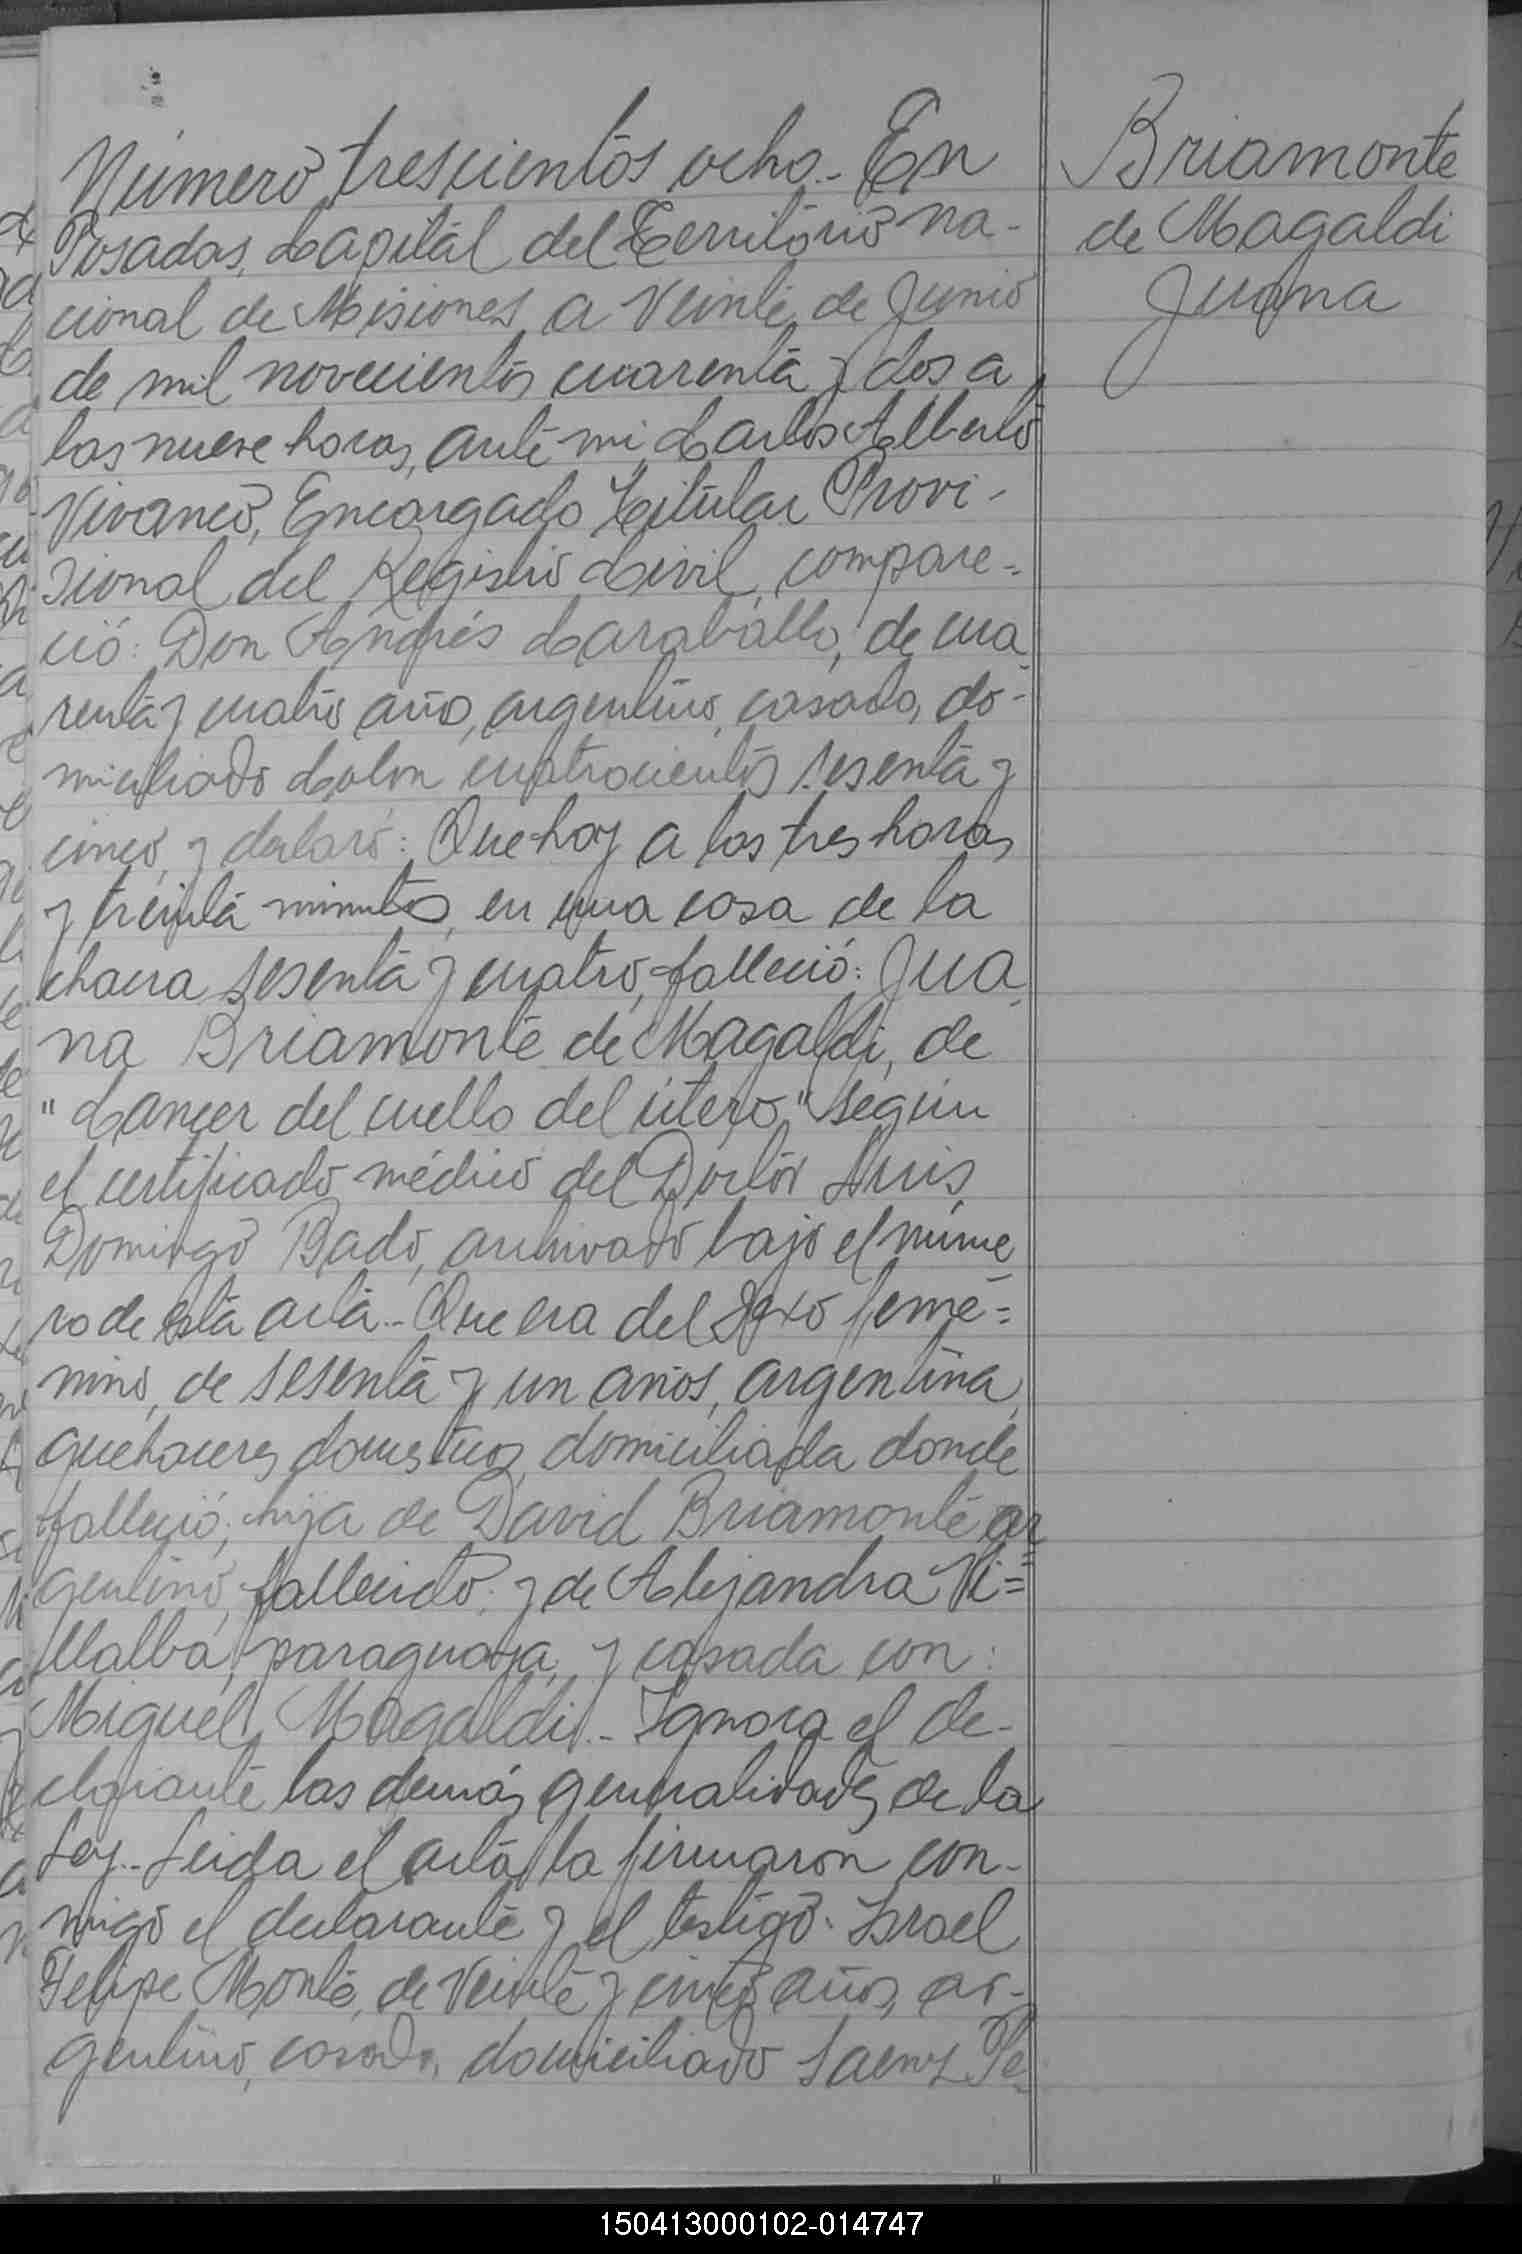 Número trescientos ocho.- En
Posadas, Capital del Territorio na-
cional de Misiones, a Veinte de Junio
de mil novecientos cuarenta y dos a
las nueve horas, ante mi, Carlos Alberto
Vivanco, Encargado Titular Provi-
sional del Registro Civil, compare=
ció: Don Andrés Caraballo, de cua
renta y cuatro año, argentino, casado, do-
miciliado Colon cuatrocientos sesenta y
cinco, y declaró: Que hoy a las tres horas
y treinta minutos, en una casa de la
chacra sesenta y cuatro, falleció: Jua
na Briamonte de Magaldi, de
"Cancer del cuello del útero," según
el certificado médico del Doctor Luis
Domingo Bado, archivado bajo el núme
ro de esta acta.- Que era del Sexo feme=
nino, de sesenta y un años, argentina,
quehaceres domesticos, domiciliada donde
falleció; hija de David Briamonte ar
gentino, fallecido; y de Alejandra Vi=
llalba, paraguaya, y casada con:
Miguel Magaldi.- Ignora el de-
clarante las demás generalidades de la
Ley.- Leida el acta, la firmaron con-
migo el declarante y el testigo. Israel
Felipe Monte, de Veinte y cinco años, ar-
gentino, casado, domiciliado Saenz Pe
Briamonte
de Magaldi
Juana
150413000102-014747